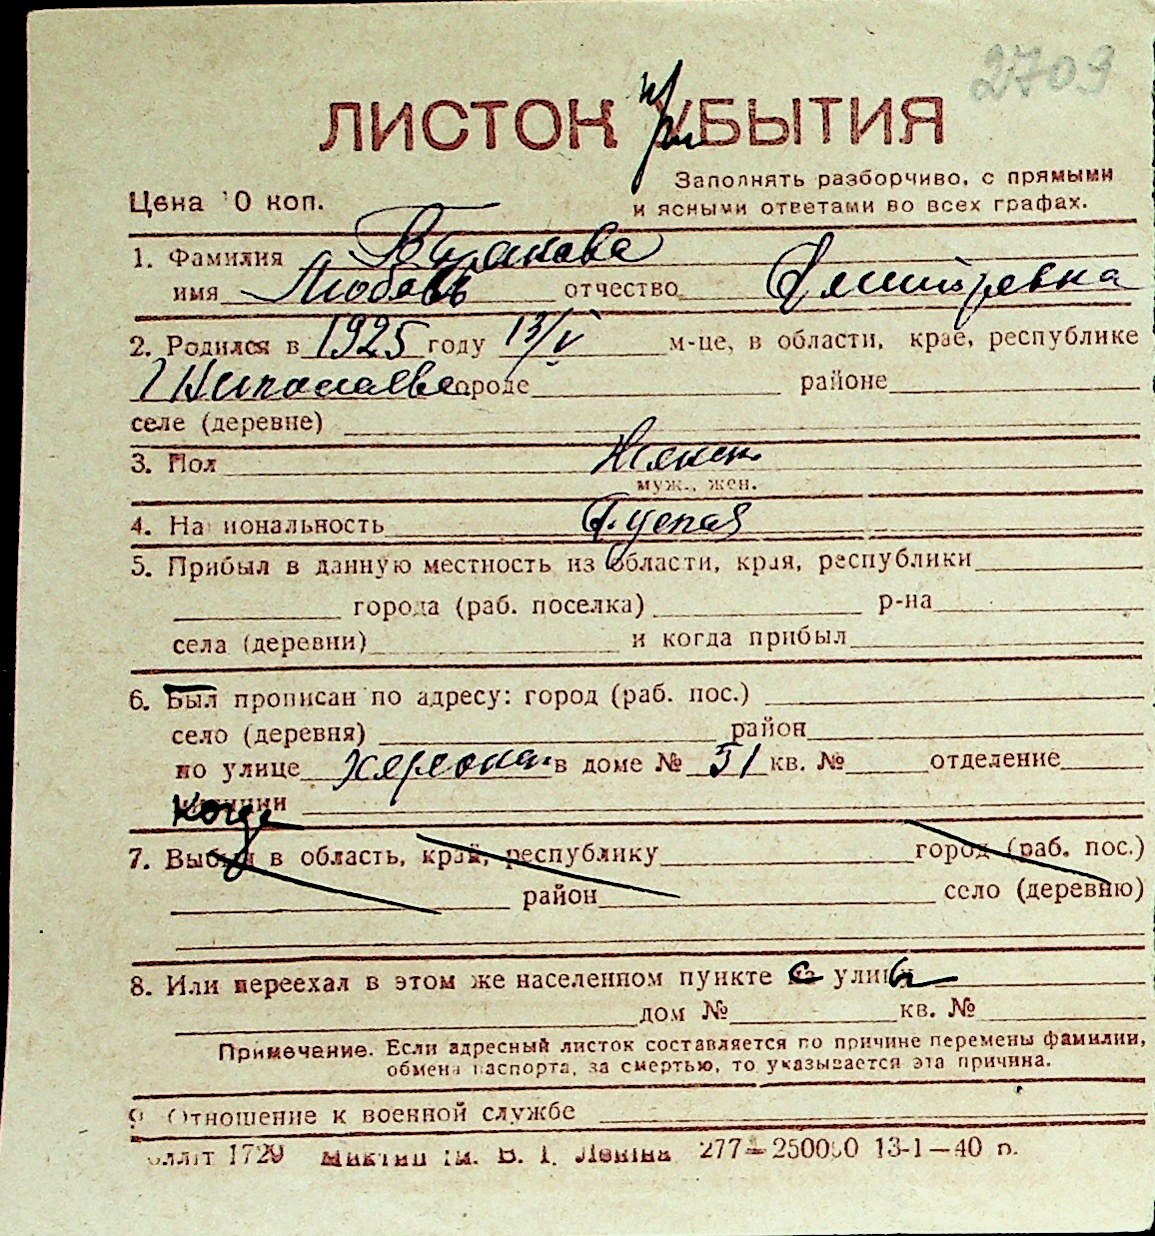 2709
ЛИСТОК ПРИБЫТИЯ
Заполнять разборчиво, с прямыми
Цена 10 коп.
и ясными ответами во всех графах.
1. Фамилия
имя Любовь отчество Дмитревна
2. Родился в 1925 году 13/V м-це, в области, крае, республике
г Николаеве городе районе
селе (деревне)
3. Пол Женск.
муж., жен.
4. Национальность Русская
5. Прибыл в данную местность из области, края, республики
города (раб. поселка) р-на
села (деревни) и когда прибыл
6. Был прописан по адресу: город (раб. пос.)
село (деревня) район
по улице Херсонск. в доме № 51 кв. № отделение
милиции Когда
7. Выбыл в область, край, республику город (раб. пос.)
район село (деревню)
8. Или переехал в этом же населенном пункте с улицы
дом № кв. №
Примечание. Если адресный листок составляется по причине перемены фамилии,
обмена паспорта, за смертью, то указывается эта причина.
9 Отношение к военной службе
1729 В. І. Леніна 277—250000 13-1—40 р.